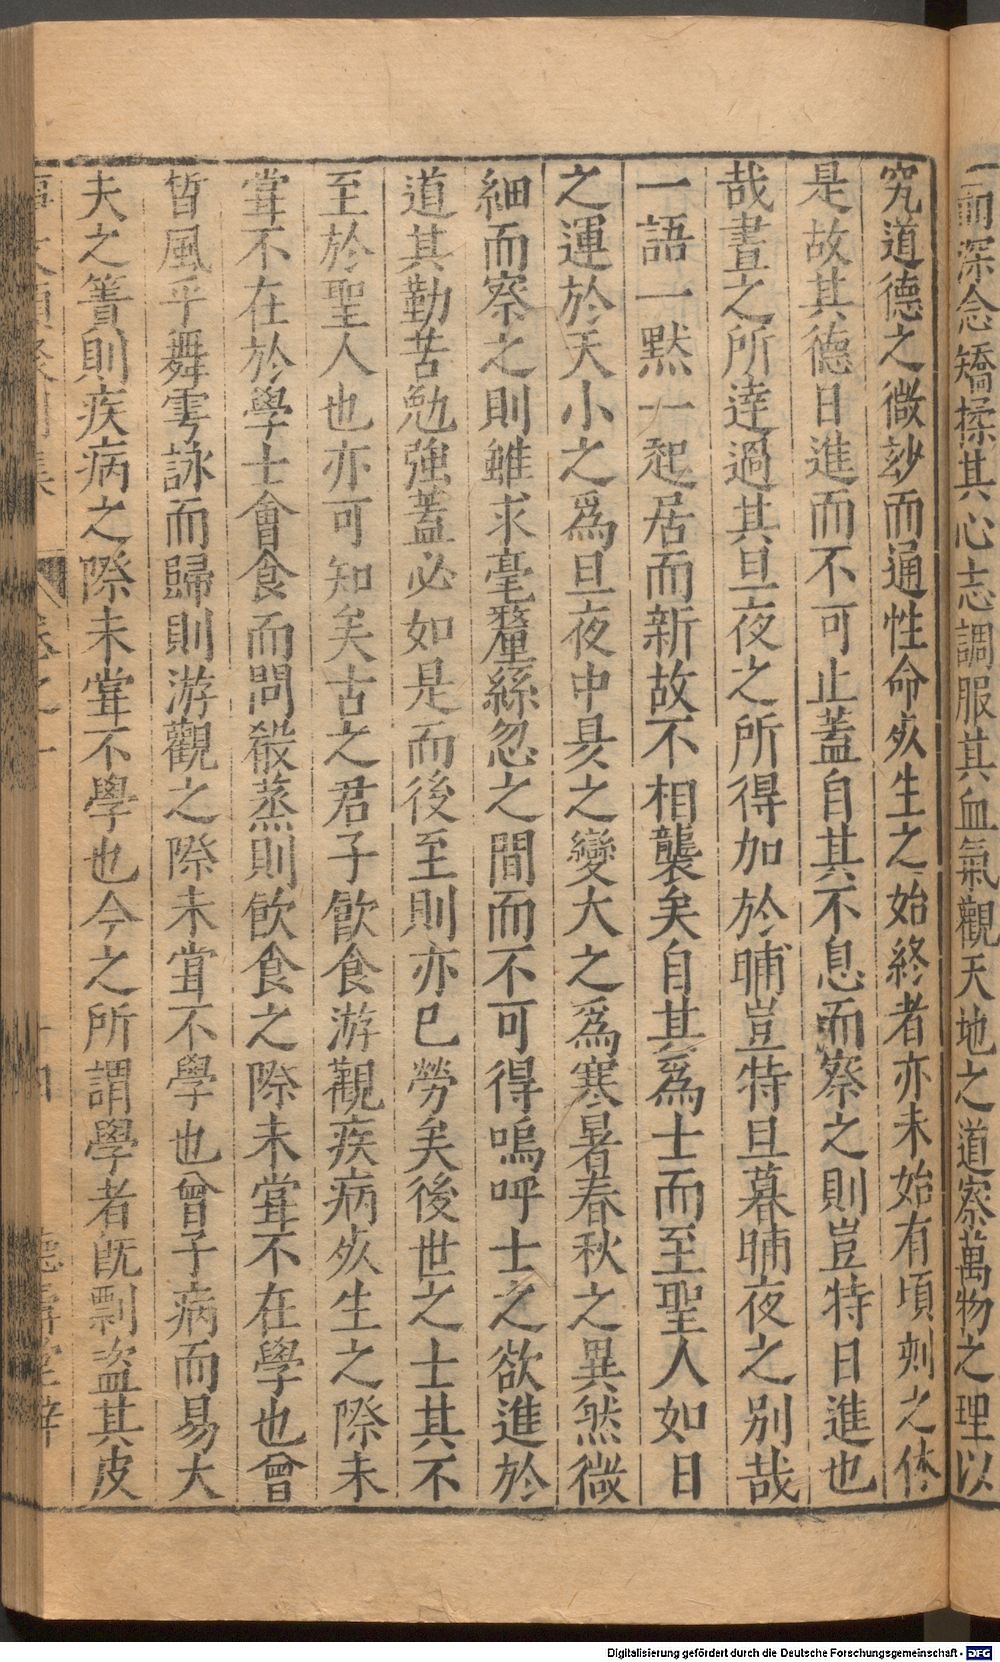 深念矯揉其心志調服其血氣觀天地之道察萬物之理以
究道德之微玅而通性命㱙生之始終者亦未始有頃刻之休
是故其德日進而不可止蓋自其不息而察之則豈特日進也
哉晝之所達過其旦夜之所得加於晡豈特旦暮晡夜之别哉
一語一默一起居而新故不相襲矣自其爲士而至聖人如日
之運於天小之爲旦夜中昃之變大之爲寒暑春秋之異然微
細而察之則雖求毫釐絲忽之間而不可得嗚呼士之欲進於
道其勤苦勉強蓋必如是而後至則亦已勞矣後世之士其不
至於聖人也亦可知矣古之君子飲食游觀疾病㱙生之際未
甞不在於學士會食而問殽蒸則飲食之際未甞不在學也曾
晳風乎舞雩詠而歸則游觀之際未甞不學也曾子病而易大
夫之簀則疾病之際未甞不學也今之所謂學者旣剽盗其皮
卷之十
Digitalisierung gefördert durch die Deutsche Forschungsgemeinschaft - DFG